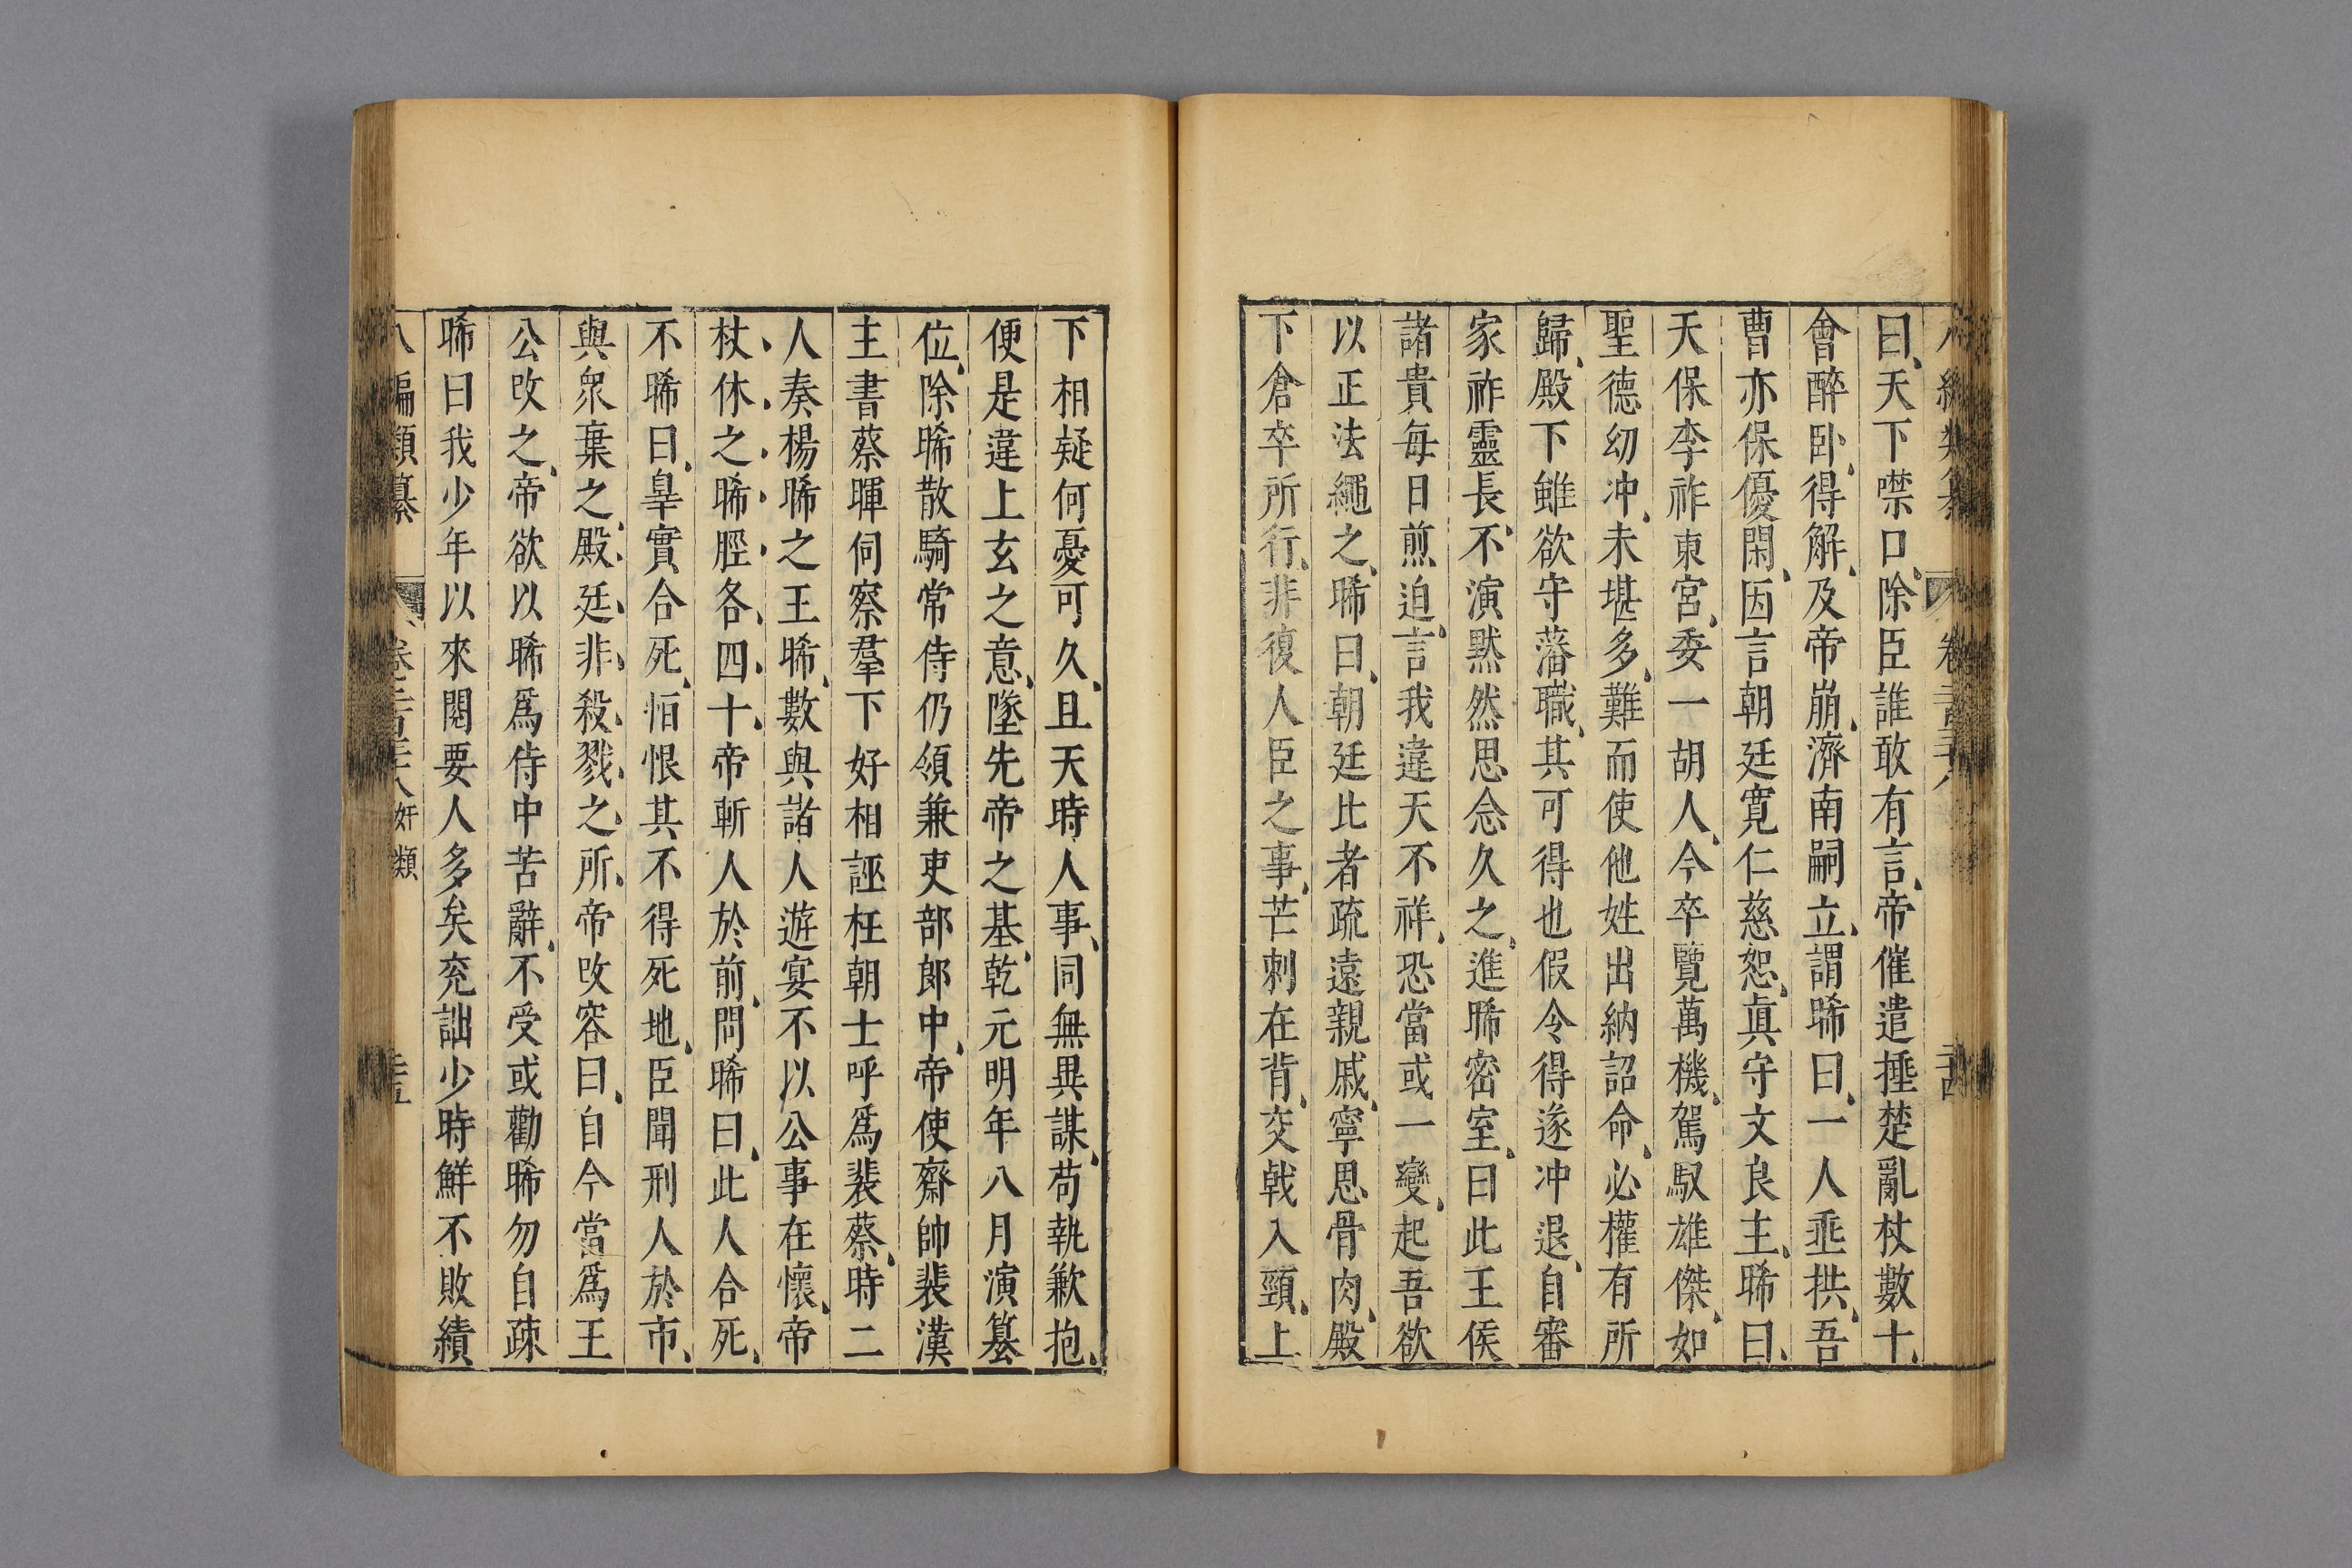 八編類纂 卷二百三十八 二十四
曰天下噤口除臣誰敢有言帝催遣捶楚亂杖數十
會醉臥得解及帝崩濟南嗣立謂晞曰一人垂拱吾
曹亦保優閑因言朝廷寬仁慈恕眞守文良主晞曰
天保李祚東宮委一胡人今卒覽萬機駕馭雄傑如
聖德幼冲未堪多難而使他姓出納詔命必權有所
歸殿下雖欲守藩職其可得也假令得遂冲退自審
家祚靈長不演黙然思念久之進晞密室曰此王侯
諸貴每日煎迫言我違天不祥恐當或一變起吾欲
以正法繩之晞曰朝廷比者疏遠親戚寧思骨肉殿
下倉卒所行非復人臣之事芒刺在背交戟入頸上
下相疑何憂可久且天時人事同無異謀苟執歉抱
便是違上玄之意墜先帝之基乾元明年八月演篡
位除晞散騎常侍仍領兼吏部郎中帝使齋帥裴漢
主書蔡暉伺察羣下好相誣枉朝士呼爲裴蔡時二
人奏楊晞之王晞數與諸人遊宴不以公事在懷帝
杖休之晞脛各四十帝斬人於前問晞曰此人合死
不晞曰辠實合死怕恨其不得死地臣聞刑人於市
與衆棄之殿廷非殺戮之所帝改容曰自今當爲王
公改之帝欲以晞爲侍中苦辭不受或勸晞勿自疎
晞曰我少年以來閱要人多矣兖詘少時鮮不敗績
八編類纂 卷二百三十八奸類 二十五